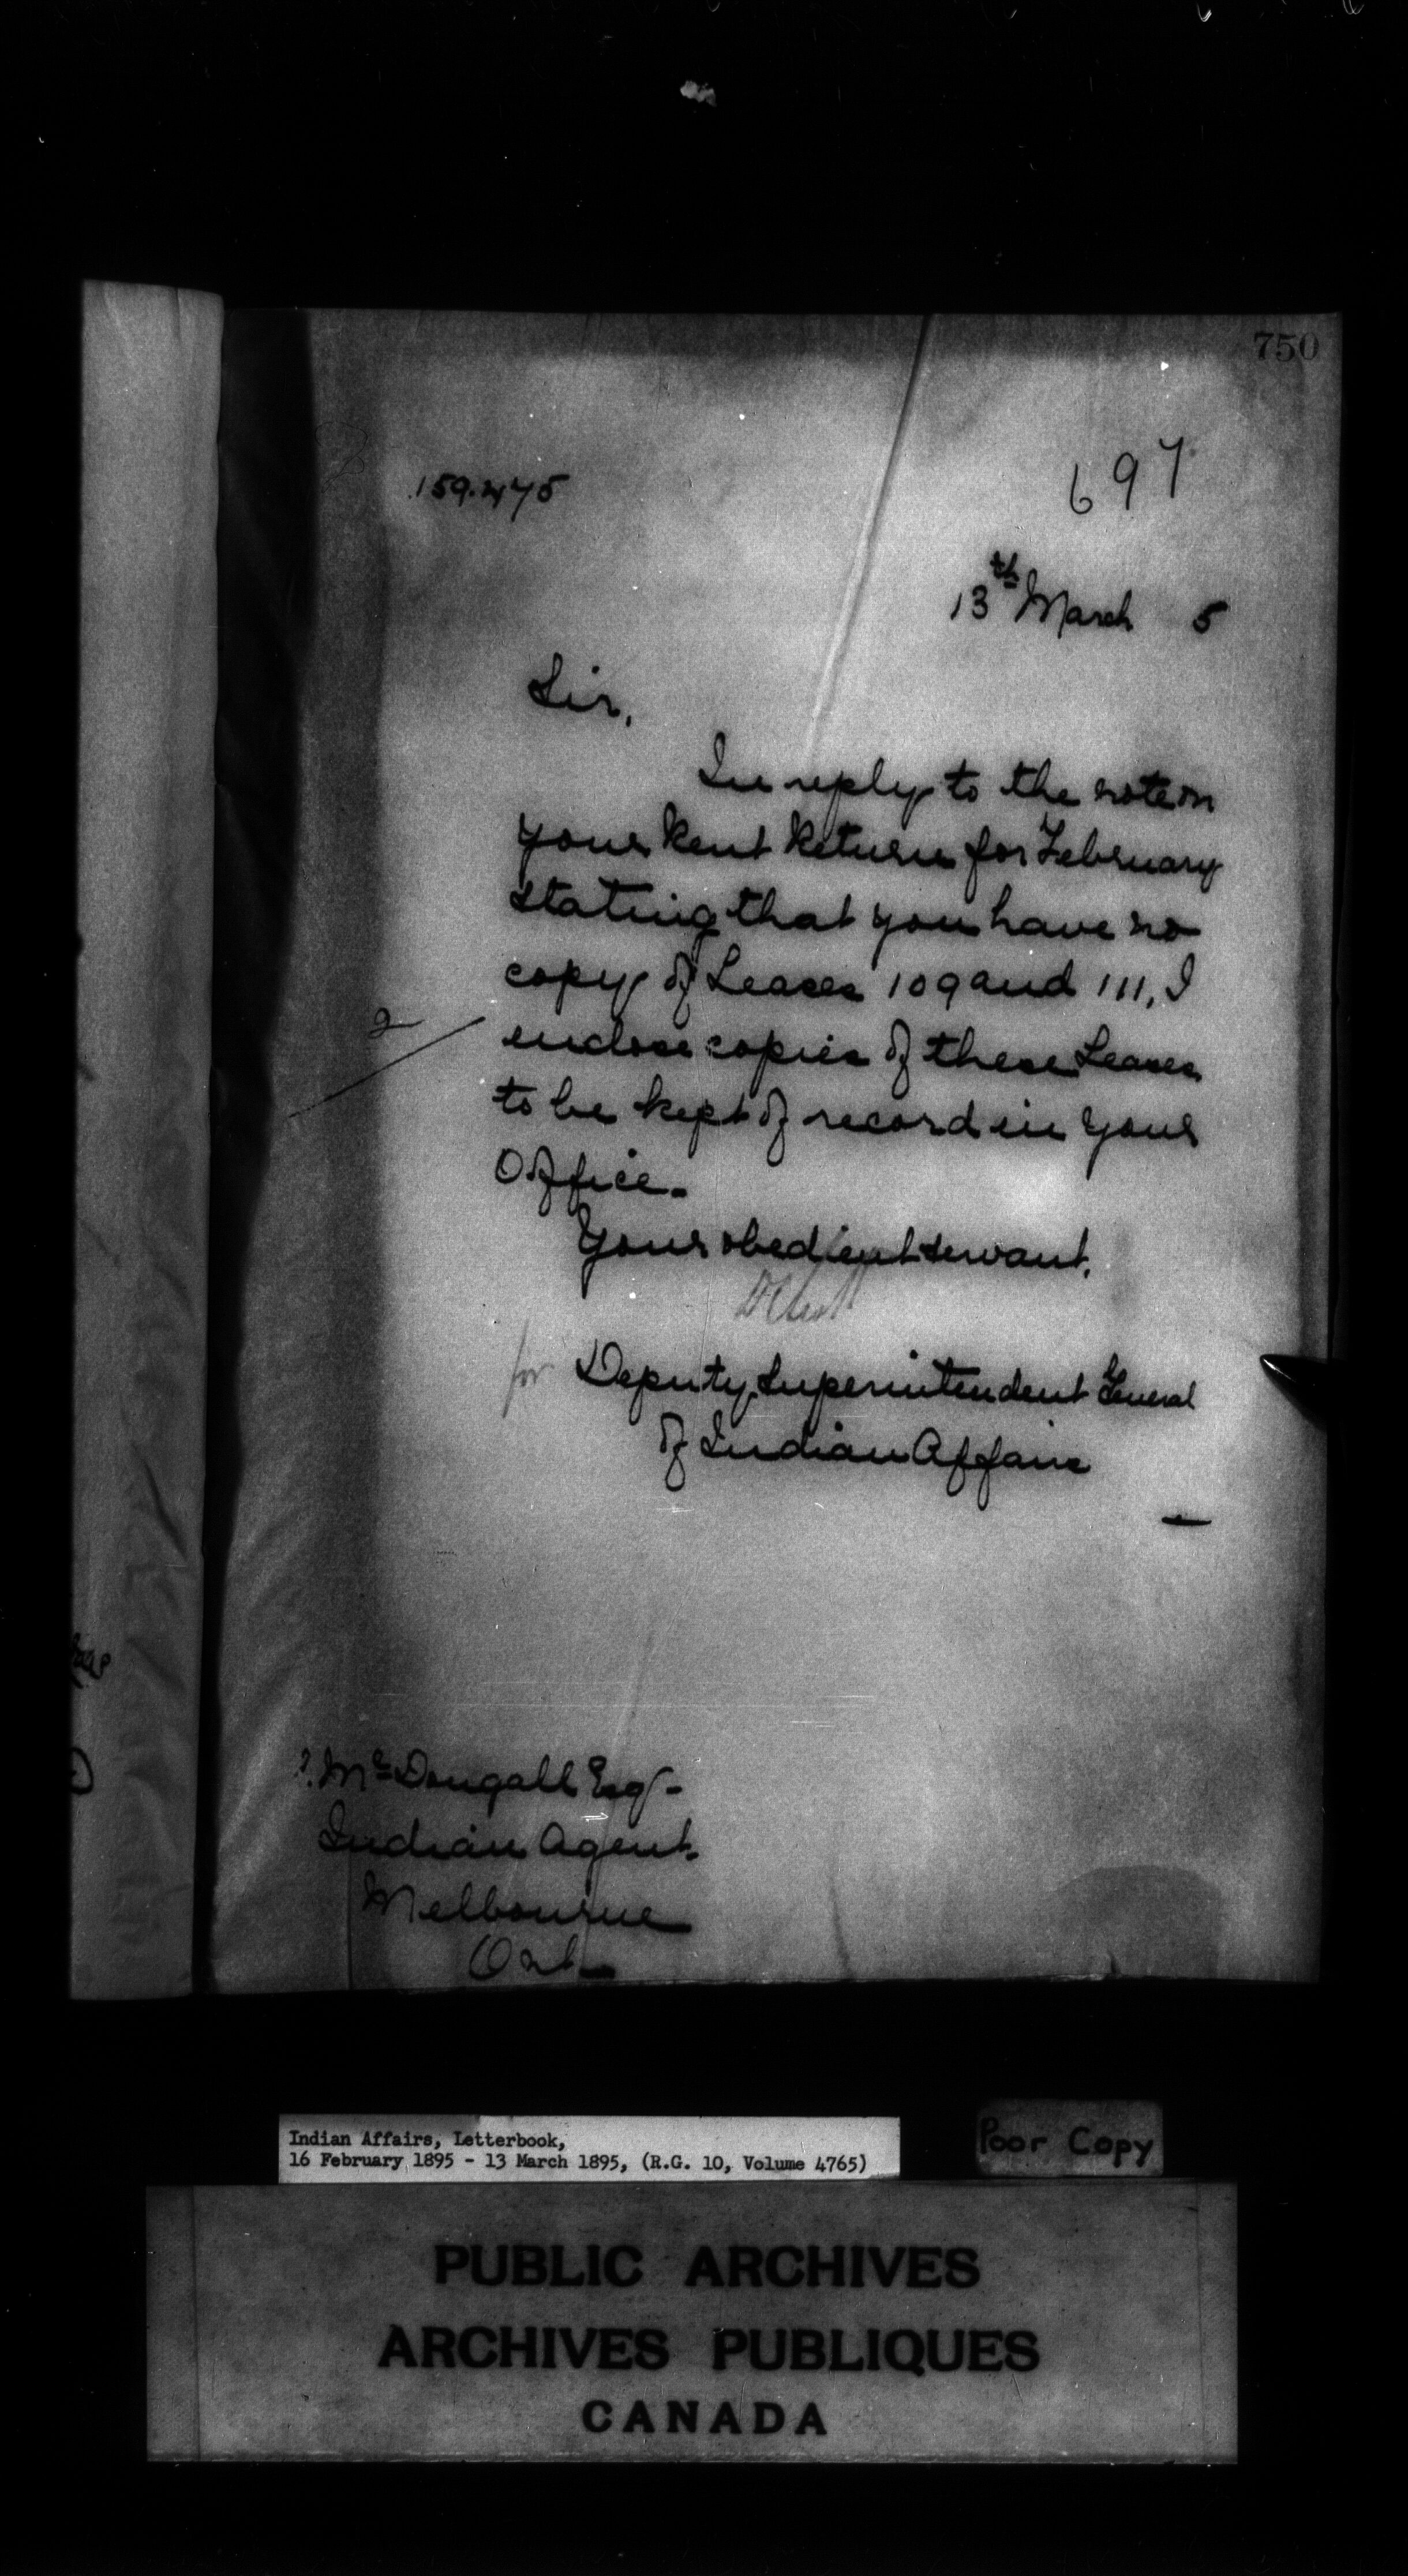 750
159.475
697
13th March 5
Sir,
In reply to the note in
your Rent Return for February
stating that you have no
copy of Leases 109 and 111, I
2
enclose copies of these Leases
to be kept of record in your
Office.
Your obedient servant,
for Deputy Superintendent General
of Indian Affairs
McDougall Esqr.
Indian Agent.
Melbourne
Ont.
Indian Affairs, Letterbook,
16 February 1895 - 13 March 1895, (R.G. 10, Volume 4765)
Poor Copy
PUBLIC ARCHIVES
ARCHIVES PUBLIQUES
CANADA